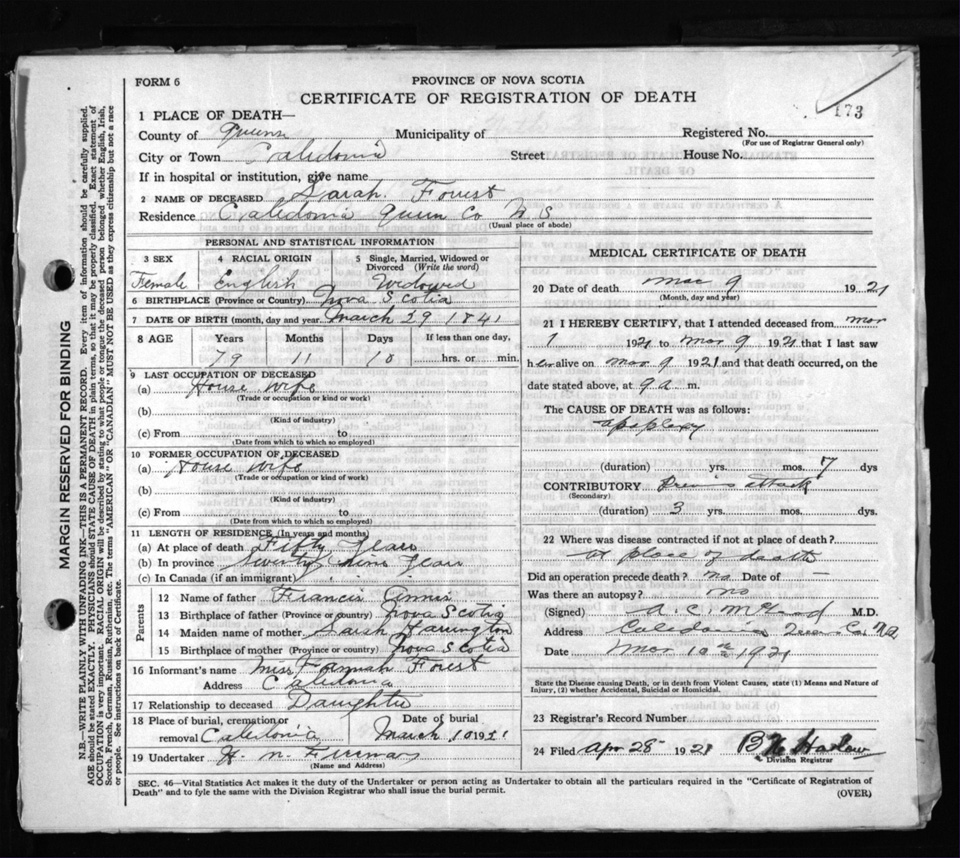 FORM 6
PROVINCE OF NOVA SCOTIA
CERTIFICATE OF REGISTRATION OF DEATH
173
1 PLACE OF DEATH—
County of Queens Municipality of Registered No.
(For use of Registrar General only)
City or Town Caledonia Street House No.
If in hospital or institution, give name
2 NAME OF DECEASED Sarah Forest
Residence Caledonia Queen Co N. S
(Usual place of abode)
PERSONAL AND STATISTICAL INFORMATION
3 SEX 4 RACIAL ORIGIN 5 Single, Married, Widowed or Divorced (Write the word)
Female English Widowed
6 BIRTHPLACE (Province or Country) Nova Scotia
7 DATE OF BIRTH (month, day and year) March 29 1841
8 AGE Years Months Days If less than one day,
79 11 10 hrs. or min.
9 LAST OCCUPATION OF DECEASED
(a) House wife
(Trade or occupation or kind or work)
(b)
(Kind of industry)
(c) From to
(Date from which to which so employed)
10 FORMER OCCUPATION OF DECEASED
(a) House wife
(Trade or occupation or kind of work)
(b)
(Kind of industry)
(c) From to
(Date from which to which so employed)
11 LENGTH OF RESIDENCE (In years and months)
(a) At place of death Fifty Years
(b) In province Seventy nine Years
(c) In Canada (if an immigrant)
Parents
12 Name of father Francis Annis
13 Birthplace of father (Province or country) Nova Scotia
14 Maiden name of mother Sarah Harrington
15 Birthplace of mother (Province or country) Nova Scotia
16 Informant's name Miss Forest
Address Caledonia
17 Relationship to deceased Daughter
18 Place of burial, cremation or removal Caledonia Date of burial March 10 1921
19 Undertaker H. N. Freeman
(Name and Address)
MEDICAL CERTIFICATE OF DEATH
20 Date of death Mar 9 1921
(Month, day and year)
21 I HEREBY CERTIFY, that I attended deceased from Mar
1 1921 to Mar 9 1921 that I last saw
her alive on Mar 9 1921 and that death occurred, on the
date stated above, at 9 a. m.
The CAUSE OF DEATH was as follows:
apoplexy
(duration) yrs. mos. 7 dys
CONTRIBUTORY Previous attack
(Secondary)
(duration) 3 yrs. mos. dys.
22 Where was disease contracted if not at place of death?
at place of death
Did an operation precede death? no Date of —
Was there an autopsy? no
(Signed) A. C. M.D.
Address Caledonia Queens Co. N.S.
Date Mar 10th 1921
State the Disease causing Death, or in death from Violent Causes, state (1) Means and Nature of
Injury, (2) whether Accidental, Suicidal or Homicidal.
23 Registrar's Record Number
24 Filed Apr 28 1921 Harlow
Division Registrar
SEC. 46—Vital Statistics Act makes it the duty of the Undertaker or person acting as Undertaker to obtain all the particulars required in the "Certificate of Registration of
Death" and to fyle the same with the Division Registrar who shall issue the burial permit. (OVER)
MARGIN RESERVED FOR BINDING
N.B.—WRITE PLAINLY WITH UNFADING INK—THIS IS A PERMANENT RECORD. Every item of information should be carefully supplied.
AGE should be stated EXACTLY. PHYSICIANS should STATE CAUSE OF DEATH in plain terms, so that it may be properly classified. Exact statement of
OCCUPATION is very important. RACIAL ORIGIN will be described by stating to what people or tongue the deceased person belonged whether English, Irish,
Scotch, French, German, Russian, Ruthenian, etc. The terms "AMERICAN" OR "CANADIAN" MUST NOT BE USED as they express citizenship but not a race
or people. See instructions on back of Certificate.